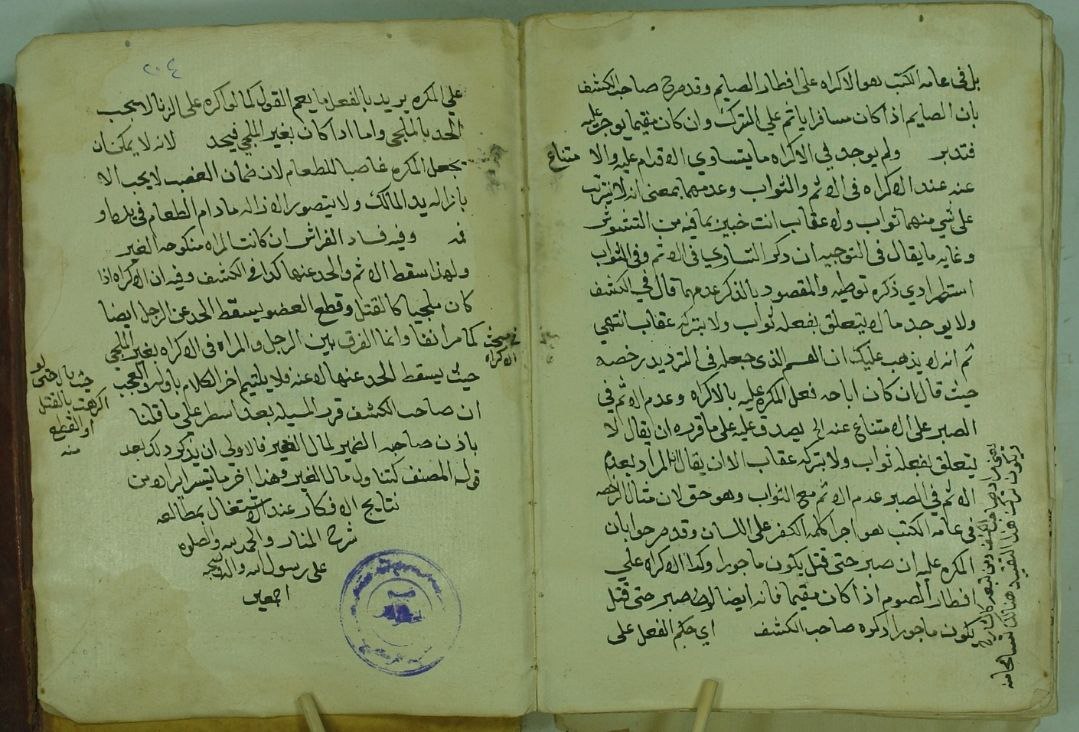 بل في عامة الكتب هو الاكراه على افطار الصايم وقد صرح صاحب الكشف
بان الصايم اذا كان مسافرا ياثم على الترك وان كان مقيما يوجر عليه
فتدبر ولم يوجد في الاكراه ما يتساوى الاقدام عليه والامتناع
عنه عند الاكراه في الاثم والثواب وعدمهما بمعنى انه لا يترتب
على شي منهما ثواب ولا عقاب انت خبير بما فيه من التشوش
وغاية ما يقال في التوجيه ان ذكر التساوي في الاثم وفي الثواب
استطرادي ذكره توطية والمقصود بالذكر عدمهما قال في الكشف
ولا يوجد ما لا يتعلق بفعله ثواب ولا بتركه عقاب انتهى
ثم انه لا يذهب عليك ان القسم الذي جعله في الترديد رخصه
حيث قال ان كان اباحه فعل المكره عليه بالاكراه وعدم الاثم في
الصبر على الامتناع عنه الخ يصدق عليه على ما قرره ان يقال لا
يتعلق بفعله ثواب ولا بتركه عقاب الا ان يقال المراد بعدم
الاثم في الصبر عدم الاثم مع الثواب وهو حق لان مثال الرخصه
في عامه الكتب هو اجرا كلمه الكفر على اللسان وقد صرحوا بان
المكره عليه ان صبر حتى قتل يكون ماجورا وكذا الاكراه على
افطار الصوم اذا كان مقيما فانه ايضا لو صبر حتى قتل
يكون ماجورا ذكره صاحب الكشف اي حكم الفعل على
٢٠٤
على المكره يريد بالفعل ما يعم القول كما لو اكره على الزنا لا يجب
الحد بالملجي واما اذا كان بغير الملجي فيحد لانه لا يمكن ان
يجعل المكره غاصبا للطعام لان ضمان الغصب لا يجب الا
بازالة يد المالك ولا يتصور الازاله ما دام الطعام في يده او
فمه وفيه فساد الفراش ان كانت المراه منكوحه الغير
ولهذا سقط الاثم والحد عنها كذا في الكشف وفيه ان الاكراه اذا
كان ملجيا كالقتل وقطع العضو يسقط الحد عن الرجل ايضا
كما مر انفا وانما الفرق بين الرجل والمراه في الاكراه بغير الملجي
حيث يسقط الحد عنها لا عنه فلا يلتيم اخر الكلام باوله والعجب
ان صاحب الكشف قرر المسيله بعد اسطر على ما قلنا
باذن صاحبه الضمير لمال الغير فالاولى ان يذكر ذلك بعد
قول المصنف كتناول مال الغير وهذا اخر ما يتسر ايراده من
نتايج الافكار عند الاشتغال بمطالعه
شرح المنار والحمد لله والصلوه
على رسول الله واله وصحبه
اجمعين
في بحث
الاكراه
حيث
اكرهت بالقتل
او القطع
منه